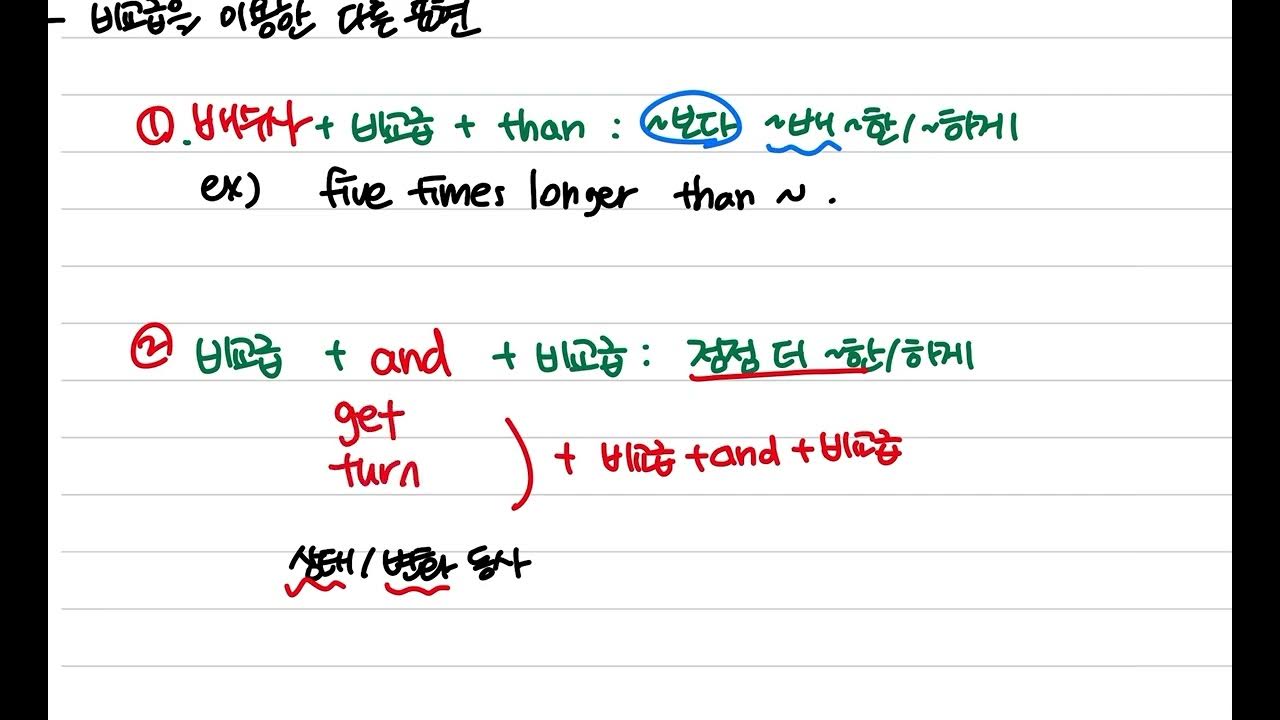 - 비교급을 이용한 다른 표현
①. 배수사 + 비교급 + than : ~보다 ~배 ~한/~하게
ex) five times longer than ~ .
② 비교급 + and + 비교급 : 점점 더 ~한/하게
get
turn ) + 비교급 + and + 비교급
상태/변화 동사